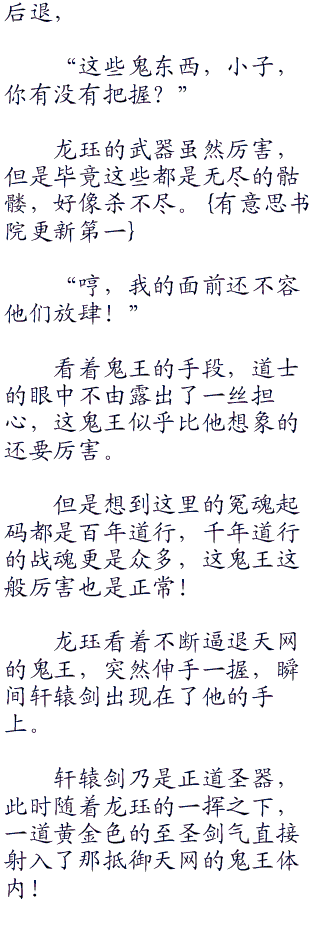 后退，
“这些鬼东西，小子，
你有没有把握？”
龙珏的武器虽然厉害，
但是毕竟这些都是无尽的骷
髅，好像杀不尽。{有意思书
院更新第一}
“哼，我的面前还不容
他们放肆！”
看着鬼王的手段，道士
的眼中不由露出了一丝担
心，这鬼王似乎比他想象的
还要厉害。
但是想到这里的冤魂起
码都是百年道行，千年道行
的战魂更是众多，这鬼王这
般厉害也是正常！
龙珏看着不断逼退天网
的鬼王，突然伸手一握，瞬
间轩辕剑出现在了他的手
上。
轩辕剑乃是正道圣器，
此时随着龙珏的一挥之下，
一道黄金色的至圣剑气直接
射入了那抵御天网的鬼王体
内！